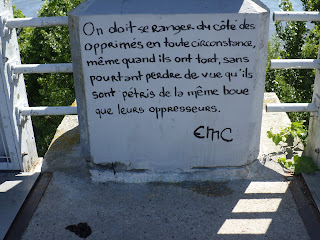 On doit se ranger du côté des
opprimés en toute circonstance,
même quand ils ont tort, sans
pourtant perdre de vue qu'ils
sont pétris de la même boue
que leurs oppresseurs.
EMC